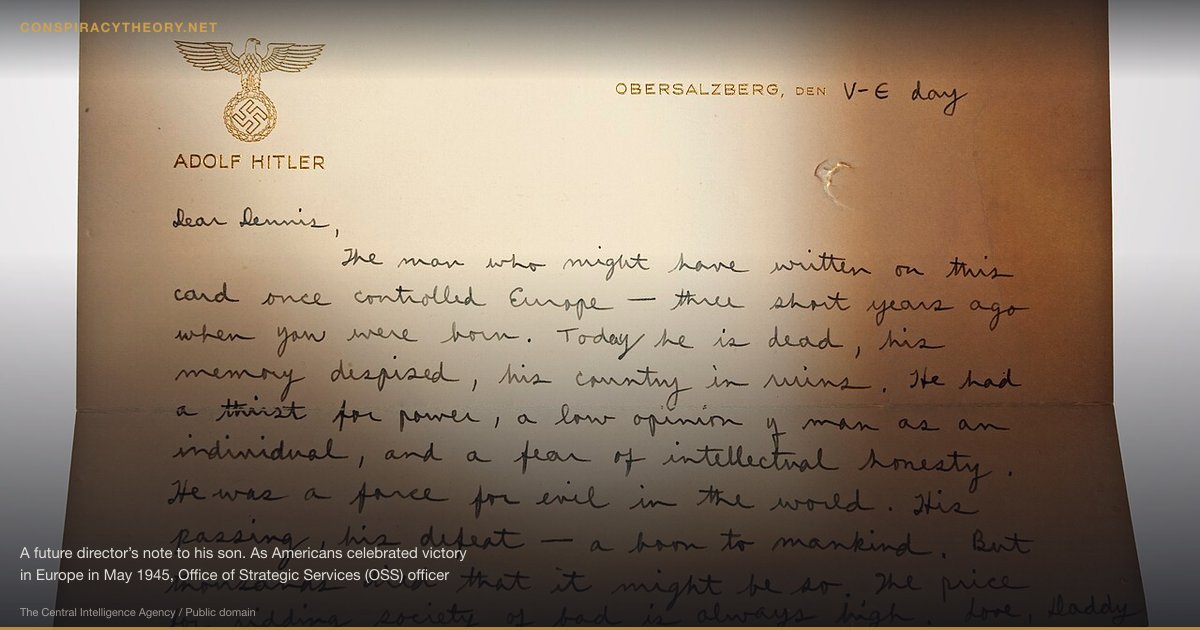 CONSPIRACYTHEORY.NET
ADOLF HITLER
OBERSALZBERG, DEN V-E day
Dear Dennis,
The man who might have written on this
card once controlled Europe — three short years ago
when you were born. Today he is dead, his
memory despised, his country in ruins. He had
a thirst for power, a low opinion of man as an
individual, and a fear of intellectual honesty.
He was a force for evil in the world. His
passing, his defeat — a boon to mankind. But
thousands died that it might be so. The price
for ridding society of bad is always high. Love, Daddy
A future director's note to his son. As Americans celebrated victory
in Europe in May 1945, Office of Strategic Services (OSS) officer
The Central Intelligence Agency / Public domain